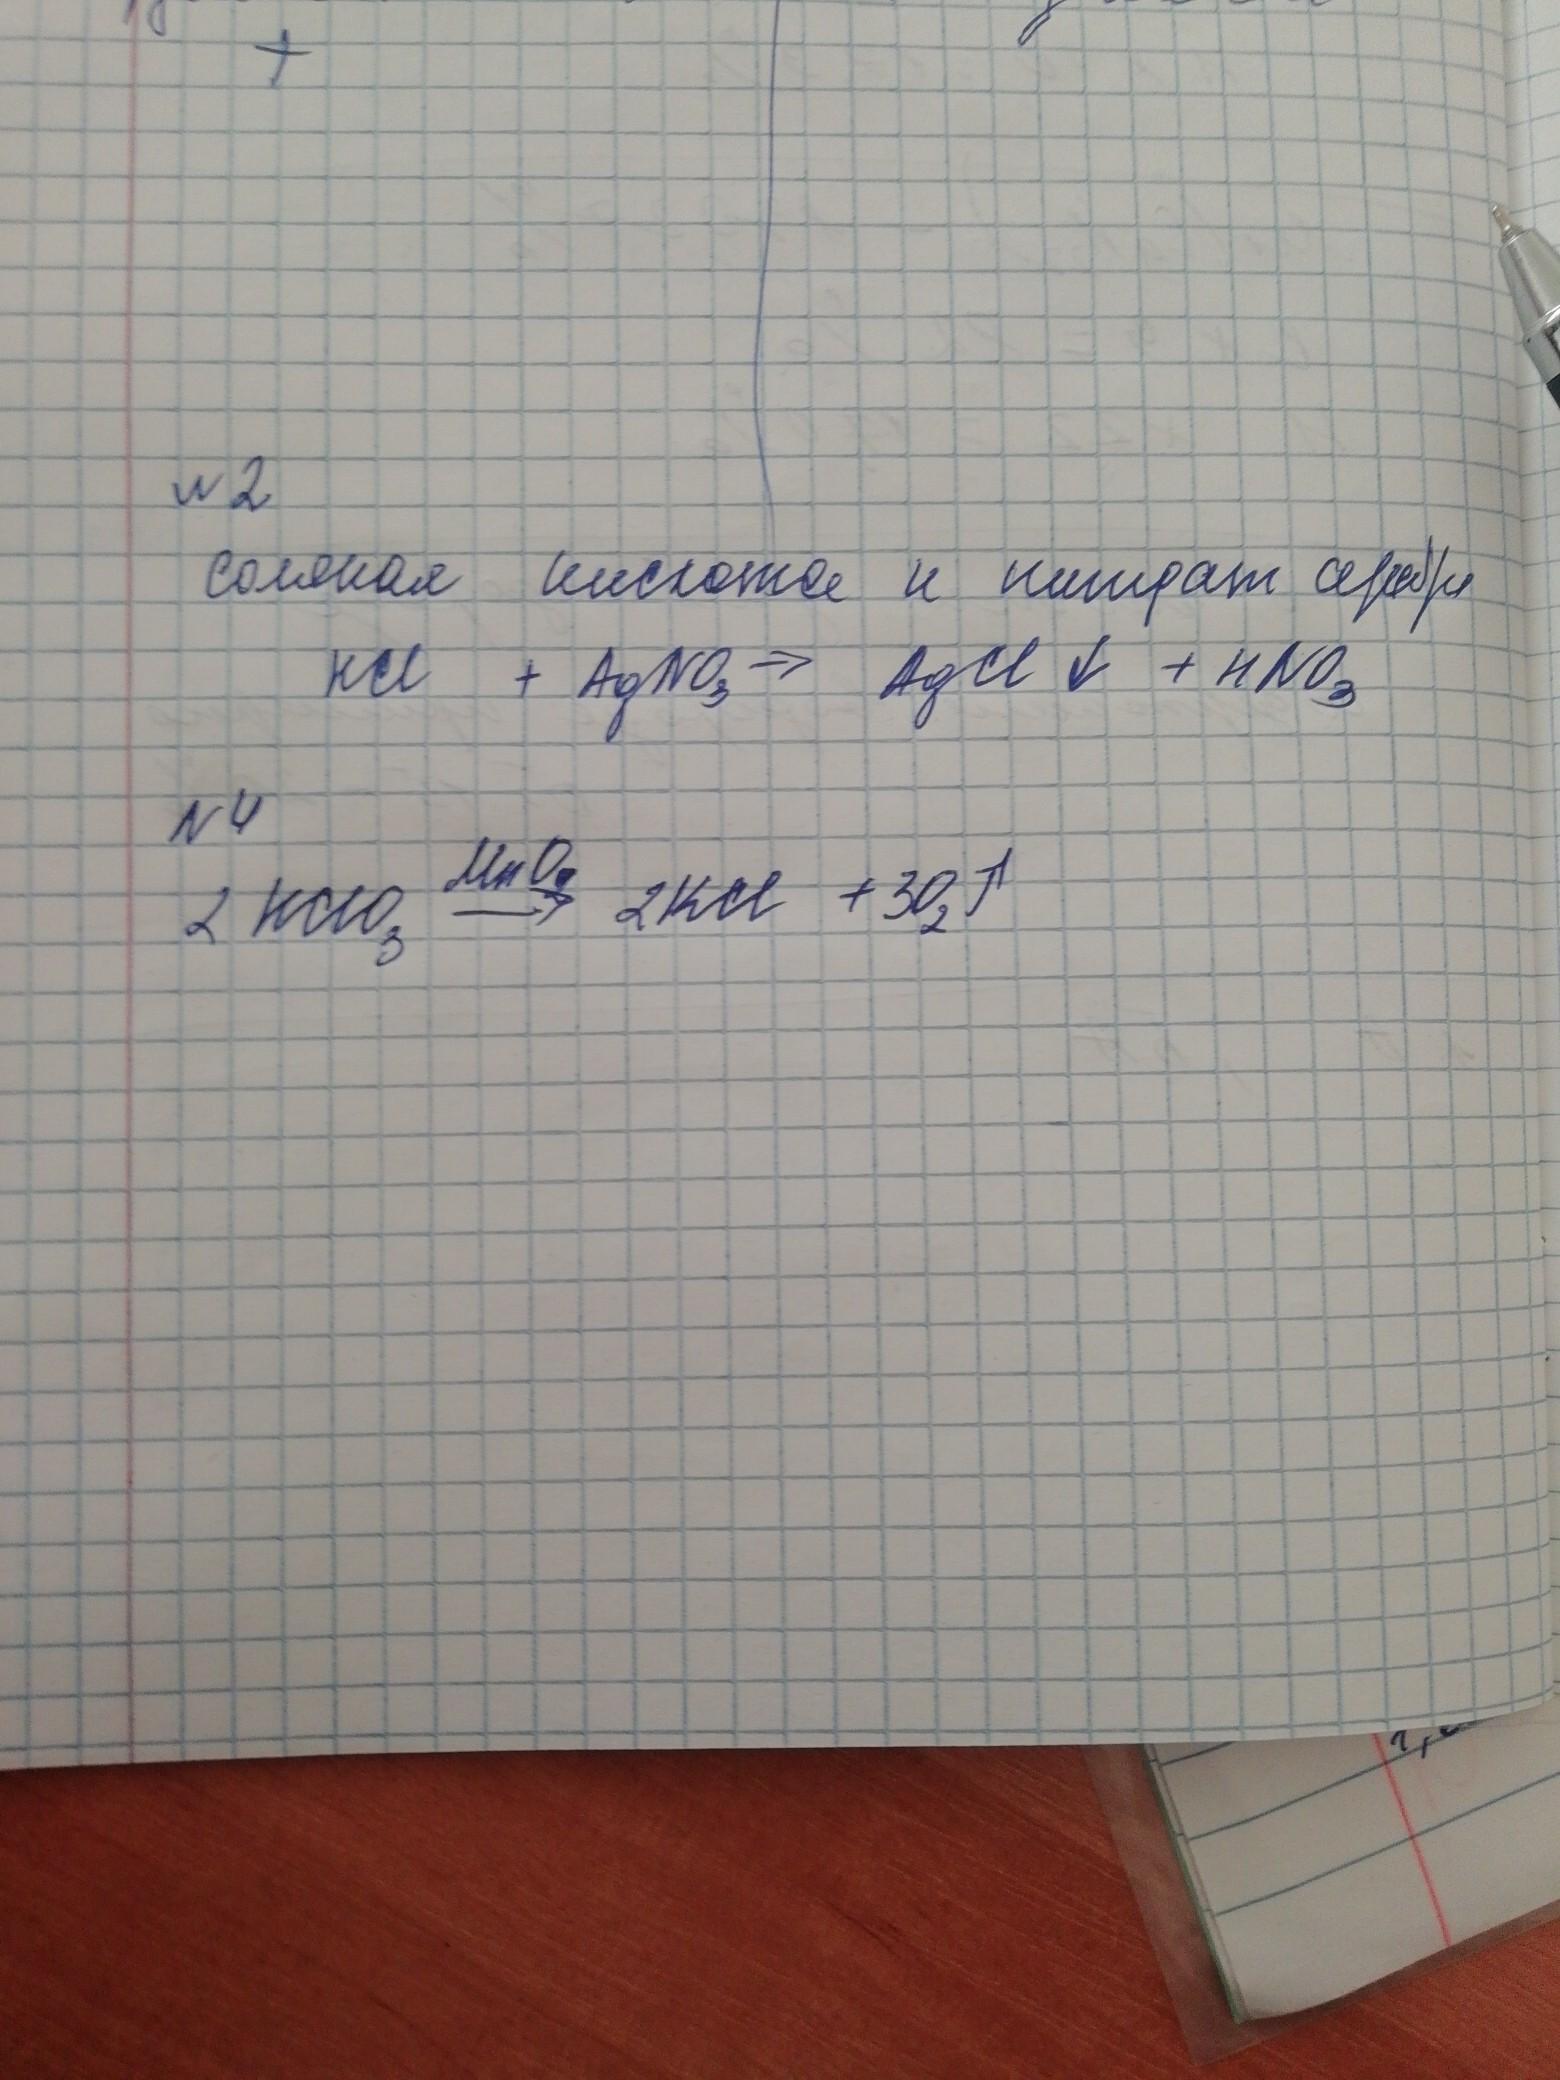 +
N2
Соляная кислота и нитрат серебра
HCl + AgNO₃ → AgCl ↓ + HNO₃
N4
MnO₂
2 KClO₃ → 2KCl + 3O₂ ↑